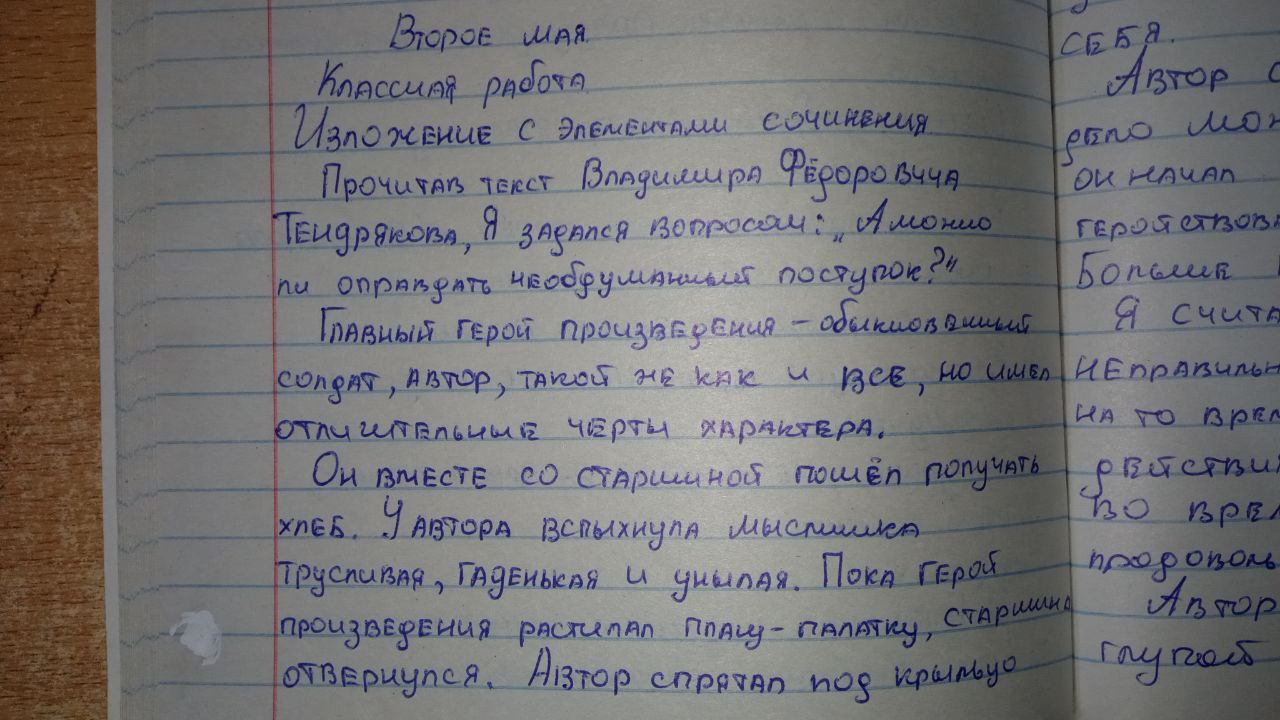 Второе мая.
Классная работа
Изложение с элементами сочинения
Прочитав текст Владимира Фёдоровича
Тендрякова, я задался вопросом: „А можно
ли оправдать необдуманный поступок?"
Главный герой произведения – обыкновенный
солдат, автор, такой же как и все, но имел
отличительные черты характера.
Он вместе со старшиной пошёл получать
хлеб. У автора вспыхнула мыслишка
трусливая, гаденькая и унылая. Пока герой
произведения растилал плащ-палатку, старшина
отвернулся. Автор спрятал под крыльцо
себя.
Автор с
дело мож
он начал
геройствов
Больше
Я счита
неправильн
на то врем
действи
во врем
продоволь
Автор
глупой